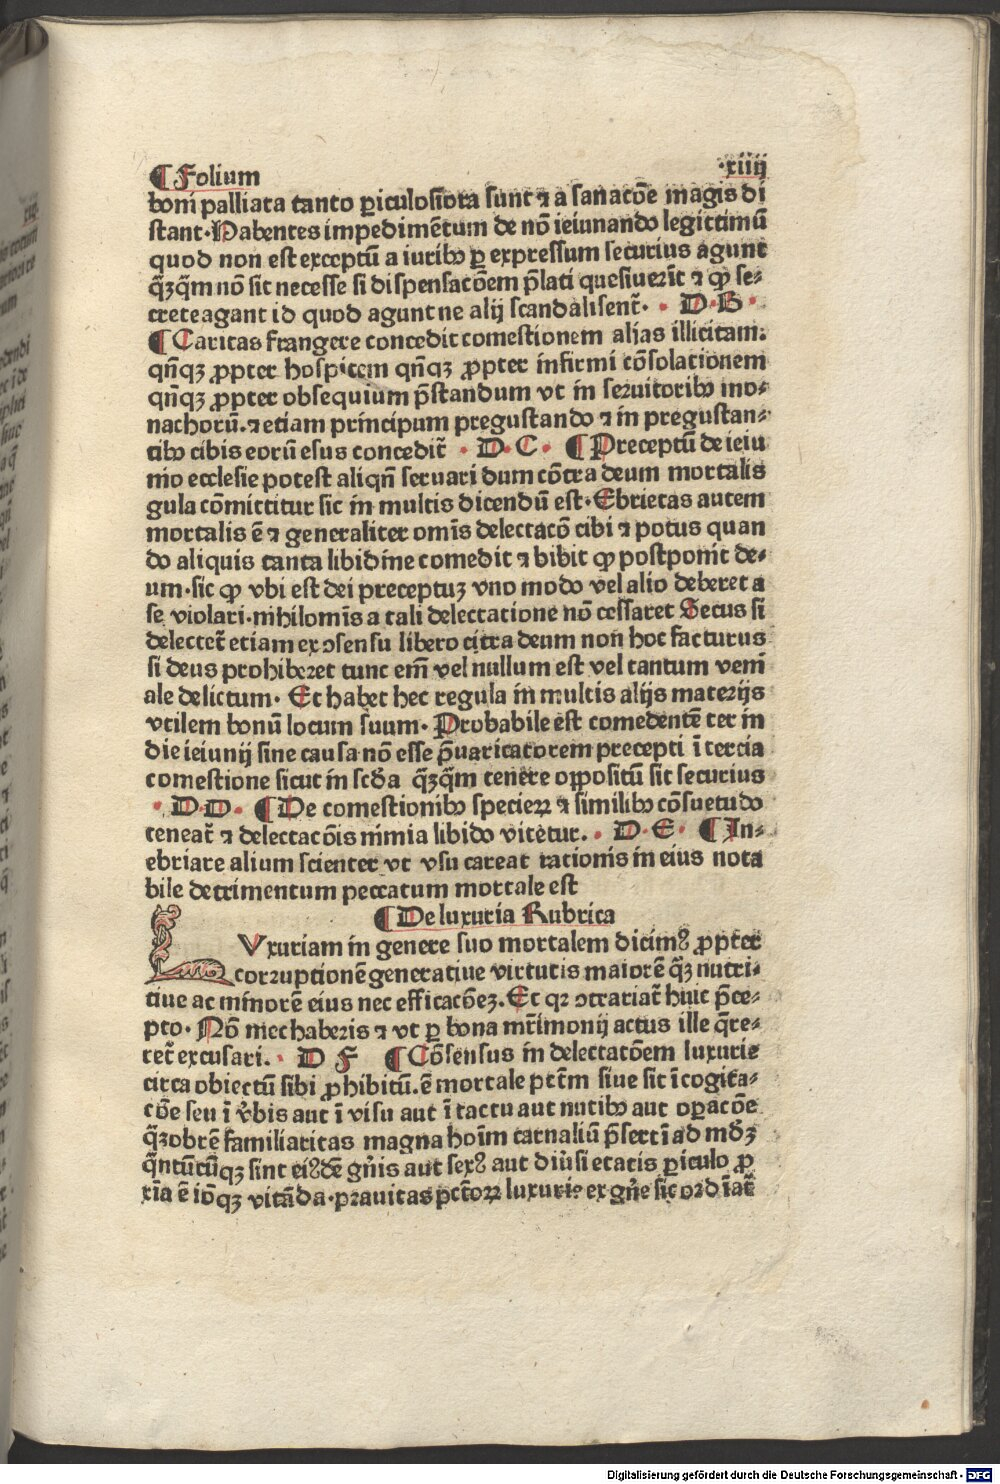 ¶ Folium ·xiiij
boni palliata tanto ꝑiculosiora sunt ⁊ a sanacōe magis di
stant·Habentes impedimētum de nō ieiunando legittimū
quod non est exceptū a iuribꝰ ꝑ expressum securius agunt
q̄ꝫq̄m nō sit necesse si dispensacōem p̄lati quesiuerīt ⁊ ꝙ se-
crete agant id quod agunt ne alij scandalisent᷑· · D·B ·
¶ Caritas frangere concedit comestionem alias illicitam:
qn̄qꝫ ꝓpter hospitem qn̄qꝫ ꝓpter infirmi cōsolationem
qn̄qꝫ ꝓpter obsequium p̄standum vt in seruitoribꝰ mo-
nachorū.⁊ etiam principum pregustando ⁊ in pregustan-
tibꝰ cibis eorū esus concedit᷑ · D·C· ¶ Preceptū de ieiu
nio ecclesie potest aliqn̄ seruari dum cōtra deum mortalis
gula cōmittitur sic in multis dicendū est·Ebrietas autem
mortalis ē ⁊ generaliter omīs delectacō cibi ⁊ potus quan
do aliquis tanta libidine comedit ⁊ bibit ꝙ postponit de-
um·sic ꝙ vbi est dei preceptuꝫ vno modo vel alio deberet a
se violari·nihilomīs a tali delectatione nō cessaret Secus si
delectet᷑ etiam ex ↄsensu libero citra deum non hoc facturus
si deus prohiberet tunc em̄ vel nullum est vel tantum veni
ale delictum· Et habet hec regula in multis alijs materijs
vtilem bonū locum suum· Probabile est comedentē ter in
die ieiunij sine causa nō esse p̄uaricatorem precepti ī tercia
comestione sicut in scd̄a q̄ꝫq̄m tenere oppositū sit securius
· D·D· ¶ De comestionibꝰ specieꝝ ⁊ similibꝰ cōsuetudo
teneat᷑ ⁊ delectacōis nimia libido vitetur. · D·E· ¶ In-
ebriare alium scienter vt vsu careat rationis in eius nota
bile detrimentum peccatum mortale est
¶ De luxuria Rubrica
LVxuriam in genere suo mortalem dicimꝰ ꝓpter
corruptionē generatiue virtutis maiorē q̄ꝫ nutri-
tiue ac minorē eius nec efficacōeꝫ. Et qꝛ ↄtrariat᷑ huic p̄ce-
pto· Nō mechaberis ⁊ vt ꝑ bona mr̄imonij actus ille q̄re-
ret᷑ excusari. · D F ¶ Cōsensus in delectacōem luxurie
circa obiectū sibi ꝓhibitū.ē mortale pctm̄ siue sit ī cogita-
cōe seu ī v̄bis aut ī visu aut ī tactu aut nutibꝰ aut oꝑacōe
q̄ꝫobrē familiaritas magna hoīm carnaliū p̄sertī ad
q̄ntūcūqꝫ sint eiꝰdē gn̄is aut sexꝰ aut diūsi etatis ꝑiculo ꝓ
xīa ē iōqꝫ vitāda·prauitas pctōꝝ luxurie ex gn̄e sic ordīat᷑
Digitalisierung gefördert durch die Deutsche Forschungsgemeinschaft - DFG